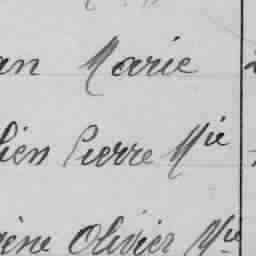 an Marie
ien Pierre Mie
ène Olivier Mie